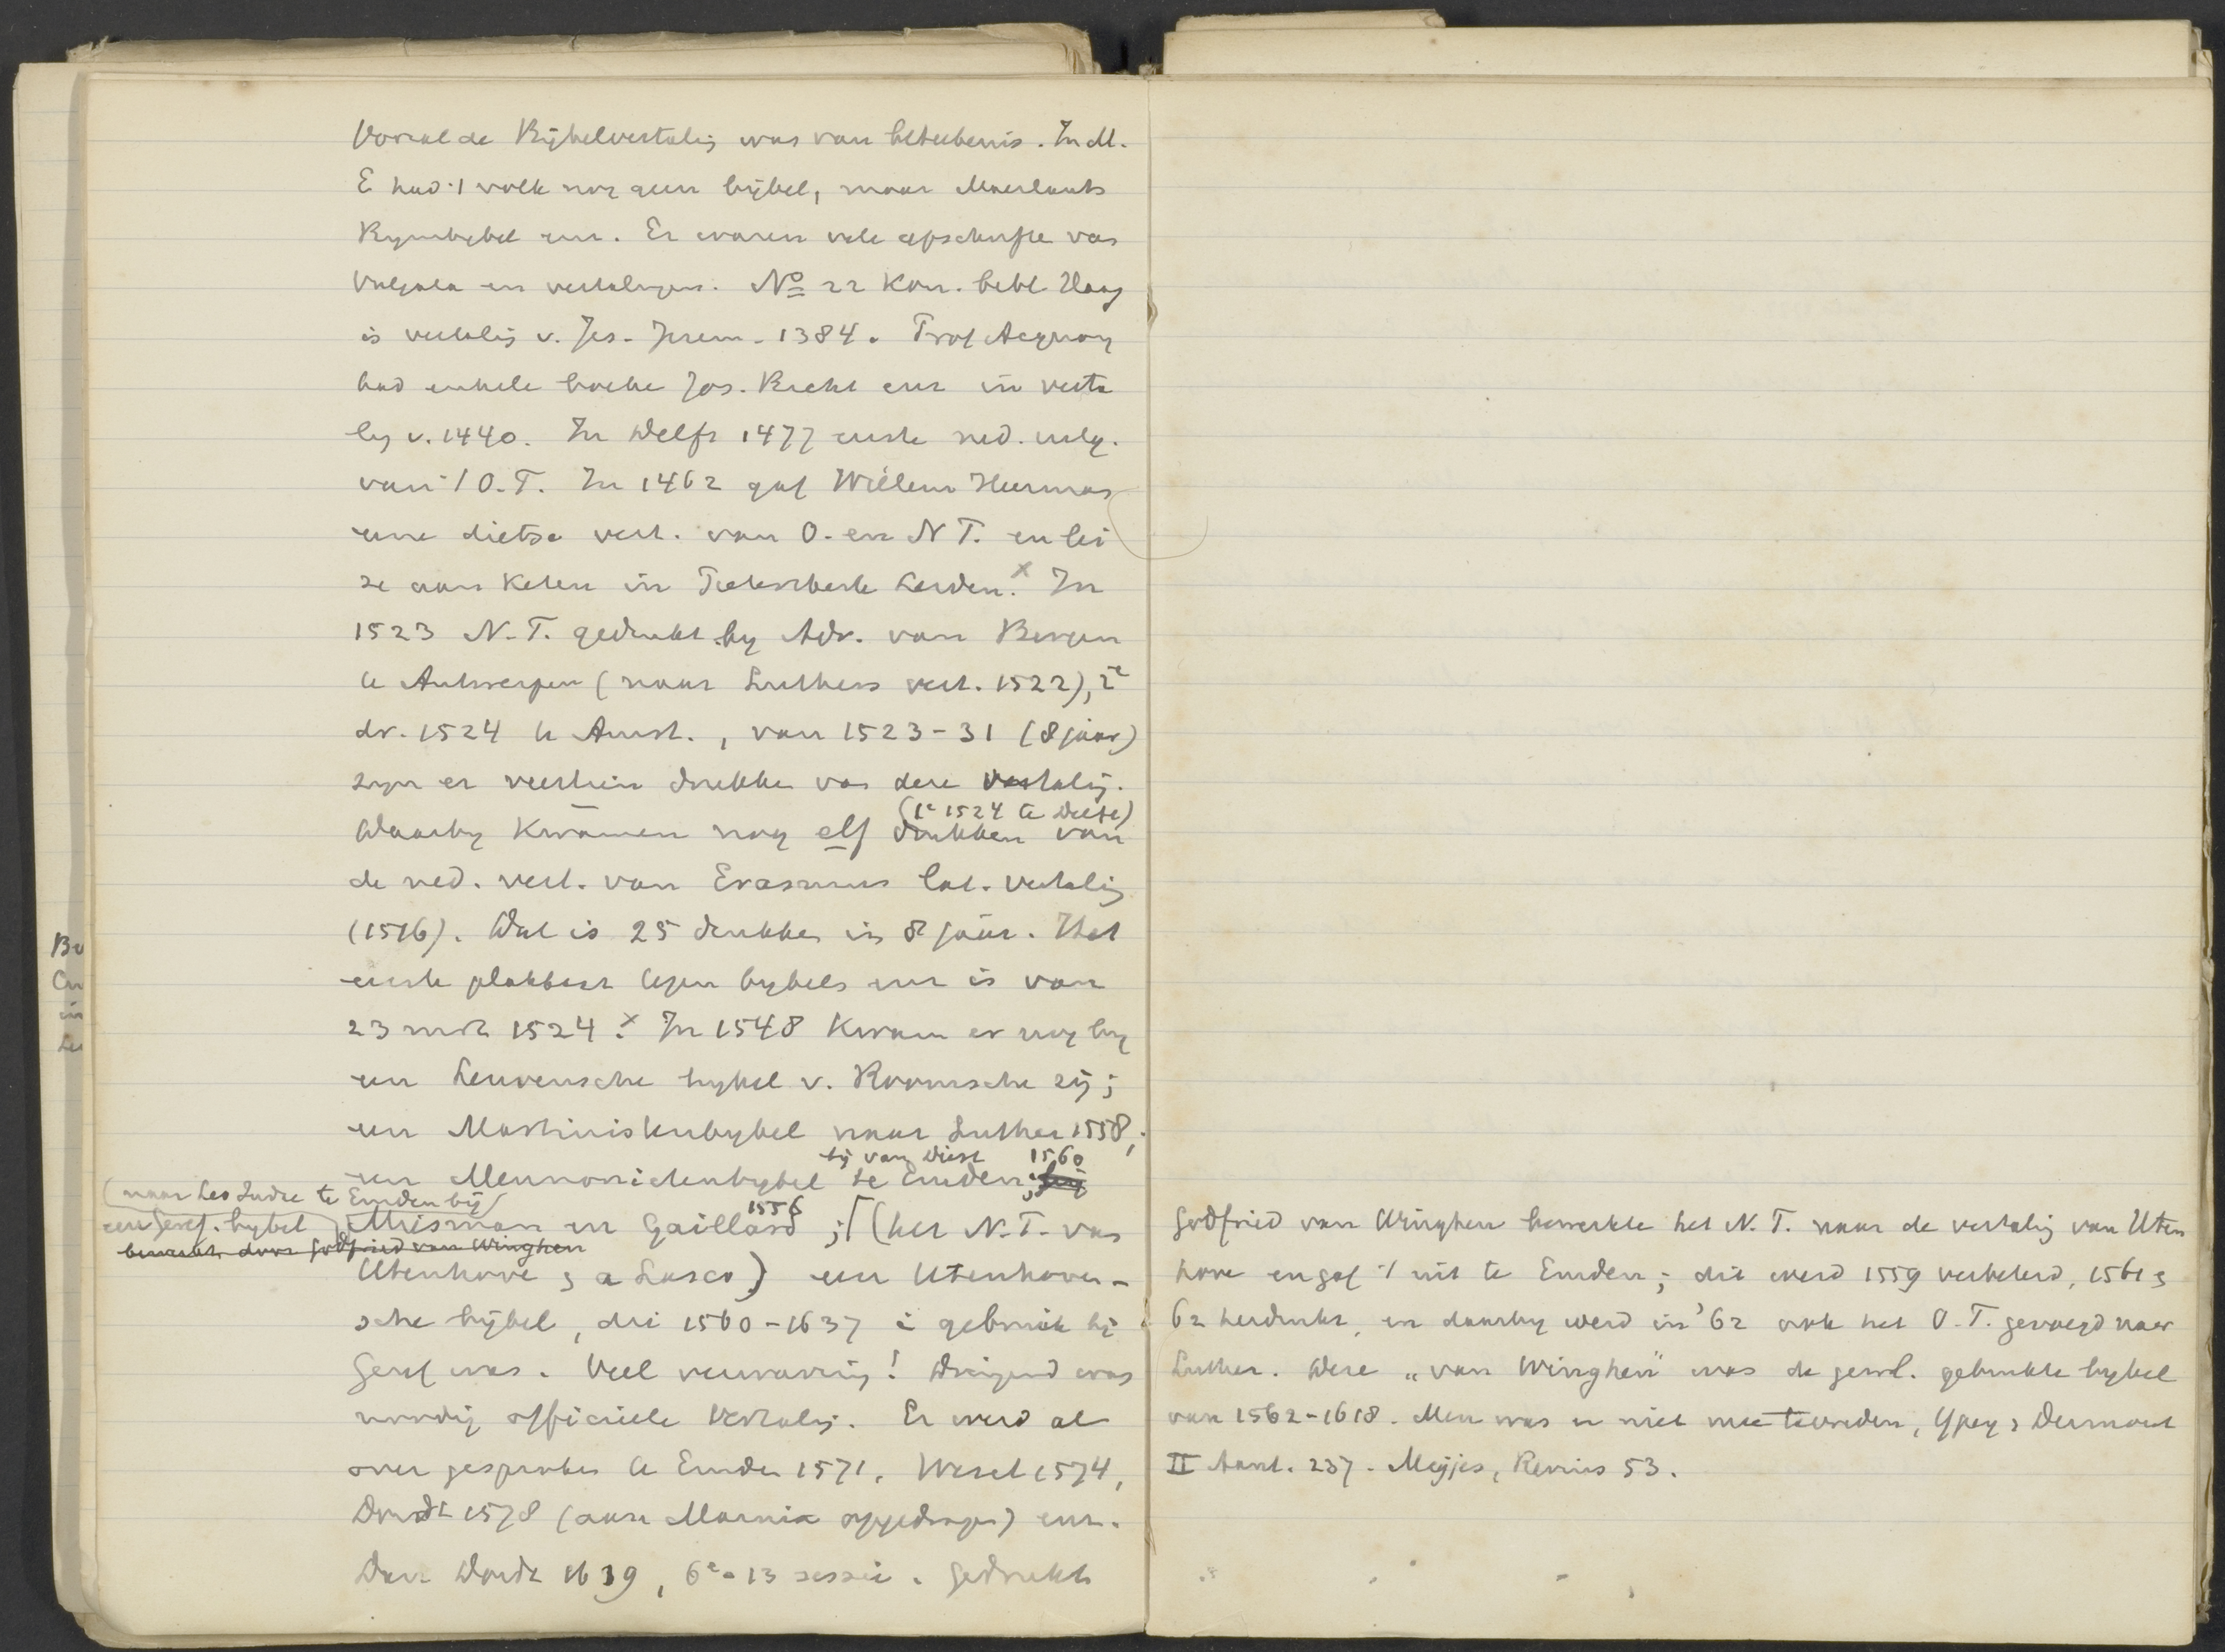 Vooral de Bijbelvertalig was van beteekenis. In M.
E had 't volk nog geen bijbel, maar Maerlants
Rymbybel enz. Er waren vele afschrifte van
Vulgata en vertalingen. No 22 Kon. bibl. Haag
is vertalig v. Jes. Jerem. 1384. Prof Acquoy
had enkele boeke Jos. Richt enz in verta
lig v. 1440. In Delft 1477 eerste ned. uitg.
van 't O.T. In 1462 gaf Willem Heerman
eene dietse vert. van O. en N T. en lei
ze aan Keten in Pieterskerk Leiden. x In
1523 N.T. gedrukt by Adr. van Bergen
te Antwerpen (naar Luthers vert. 1522), 2e
dr. 1524 te Amst., van 1523-31 (8 jaar)
zyn er veertien drukke van deze vertalig.
(1e 1524 te Delft)
Daarby kwamen nog elf drukken van
de ned. vert. van Erasmus lat. vertalig
(1516). Dat is 25 drukke in 8 jaar. Het
eerste plakkaat tegen bybels enz is van
23 mrt 1524. x In 1548 kwam er nog by
een Leuvensche bybel v. Roomsche zij;
een Martinistenbybel naar Luther 1558;
bij van Diest 1560
een Mennonietenbybel te Emden; bij
(naar Leo Judae te Emden bij)
een Geref. bybel Mierdman en Gaillard 1556; (het N.T. van
bewerkt door Godfried van Winghen
Utenhove & a Lasco) een Utenhoven-
sche bijbel, die 1560-1637 i gebruik bij
Geref was. Veel verwarring! Dringend was
noodig officiëele vertalig. Er werd al
over gesproken te Emden 1571, Wesel 1574,
Dordt 1578 (aan Marnix opgedragen) enz.
Dan Dordt 1619, 6e-13 sessie. Gedrukt
Godfried van Winghen bewerkte het N.T. naar de vertalig van Uten
hove en gaf 't uit te Emden; dit werd 1559 verbeterd, 1561 &
62 herdrukt, en daarby werd in '62 ook het O.T. gevoegd naar
Luther. Deze „van Winghen" was de gerel. gebruikte bybel
van 1562-1618. Men was er niet mee tevreden, Ypey & Dermout
II Aant. 237. Meyjes, Revius 53.